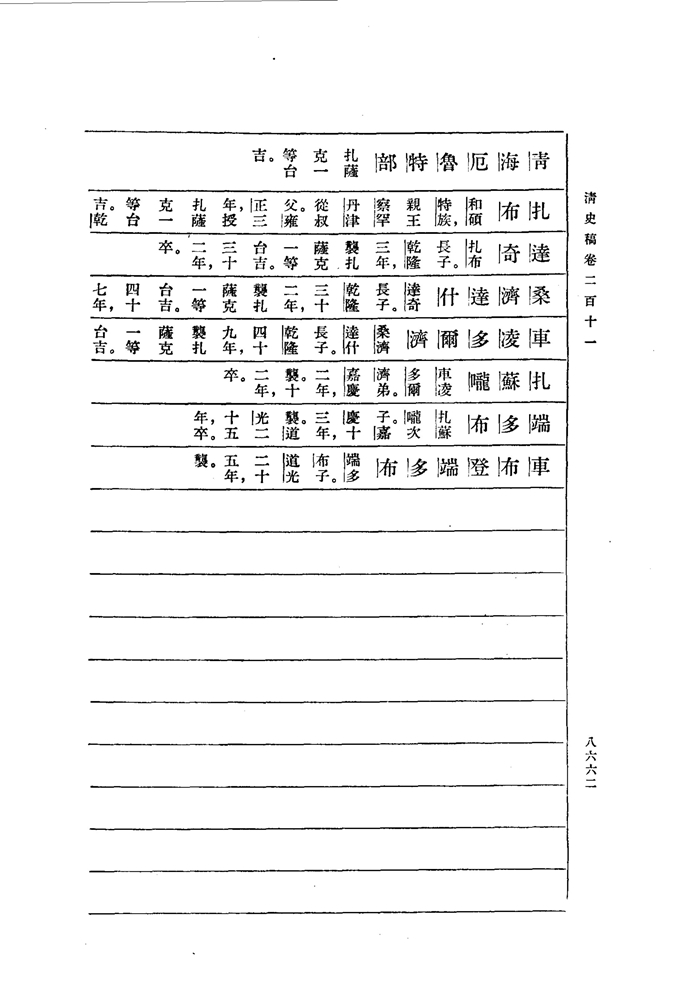 清史稿卷二百十一
靑海厄魯特部 扎薩克一等台吉。
扎布 和碩特族,親王察罕丹津從叔父。雍正三年,授扎薩克一等台吉。乾
達奇 扎布長子。乾隆三年,襲扎薩克一等台吉。三十二年,卒。
桑濟達什 達奇長子。乾隆三十二年,襲扎薩克一等台吉。四十七年,
車凌多爾濟 桑濟達什長子。乾隆四十九年,襲扎薩克一等台吉。
扎蘇嚨 車凌多爾濟弟。嘉慶二年,襲。十二年,卒。
端多布 扎蘇嚨次子。嘉慶十三年,襲。道光二十五年,卒。
車布登端多布 端多布子。道光二十五年,襲。
八六六二